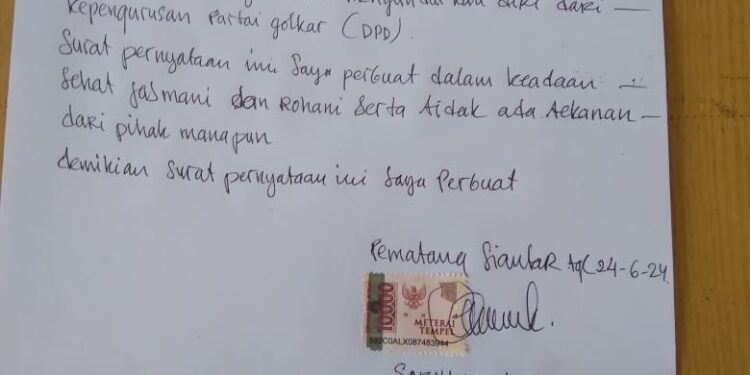 mengundurkan diri dari —
Kepengurusan Partai golkar (DPD).
Surat pernyataan ini Saya perbuat dalam keadaan —
Sehat Jasmani dan Rohani Serta Tidak ada Tekanan —
dari pihak manapun
demikian Surat pernyataan ini Saya Perbuat
Pematang Siantar tgl 24-6-24
10000
METERAI
TEMPEL
592C0ALX087483944